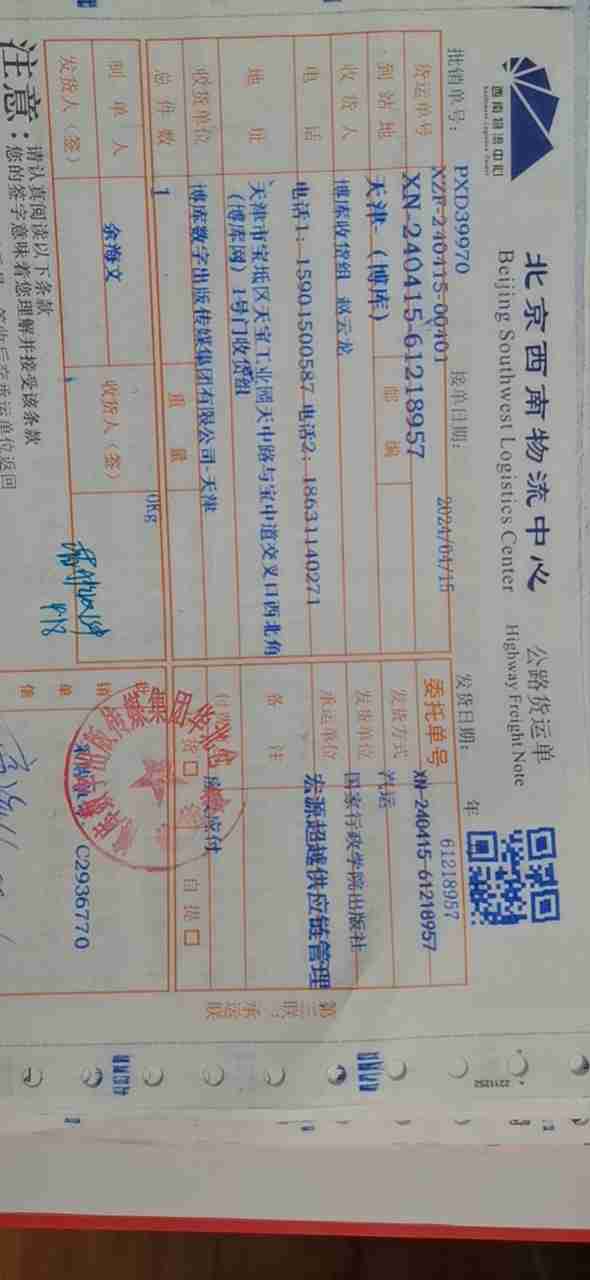 西南物流中心
Southwest Logistics Center
北京西南物流中心
Beijing Southwest Logistics Center
公路货运单
Highway Freight Note
批销单号: PXD39970
接单日期: 2024/04/15
发货日期: 年
61218957
XZF-240415-00401
货运单号 XN-240415-61218957
委托单号 XN-240415-61218957
到站地 天津-(博库)
邮编
发货方式 汽运
收货人 博库收货组 赵云龙
发货单位 国家行政学院出版社
电话 电话1:15901500587 电话2:18631140271
承运单位 宏源超越供应链管理
地址 天津市宝坻区天宝工业园天中路与宝中道交叉口西北角
(博库网)1号门收货组
备注
收货单位 博库数字出版传媒集团有限公司-天津
总件数 1
重量 0Kg
自提□
制单人 余海文
收货人(签)
4/18
C2936770
发货人(签)
第三联:承运联
注意:
请认真阅读以下条款
您的签字意味着您理解并接受该条款